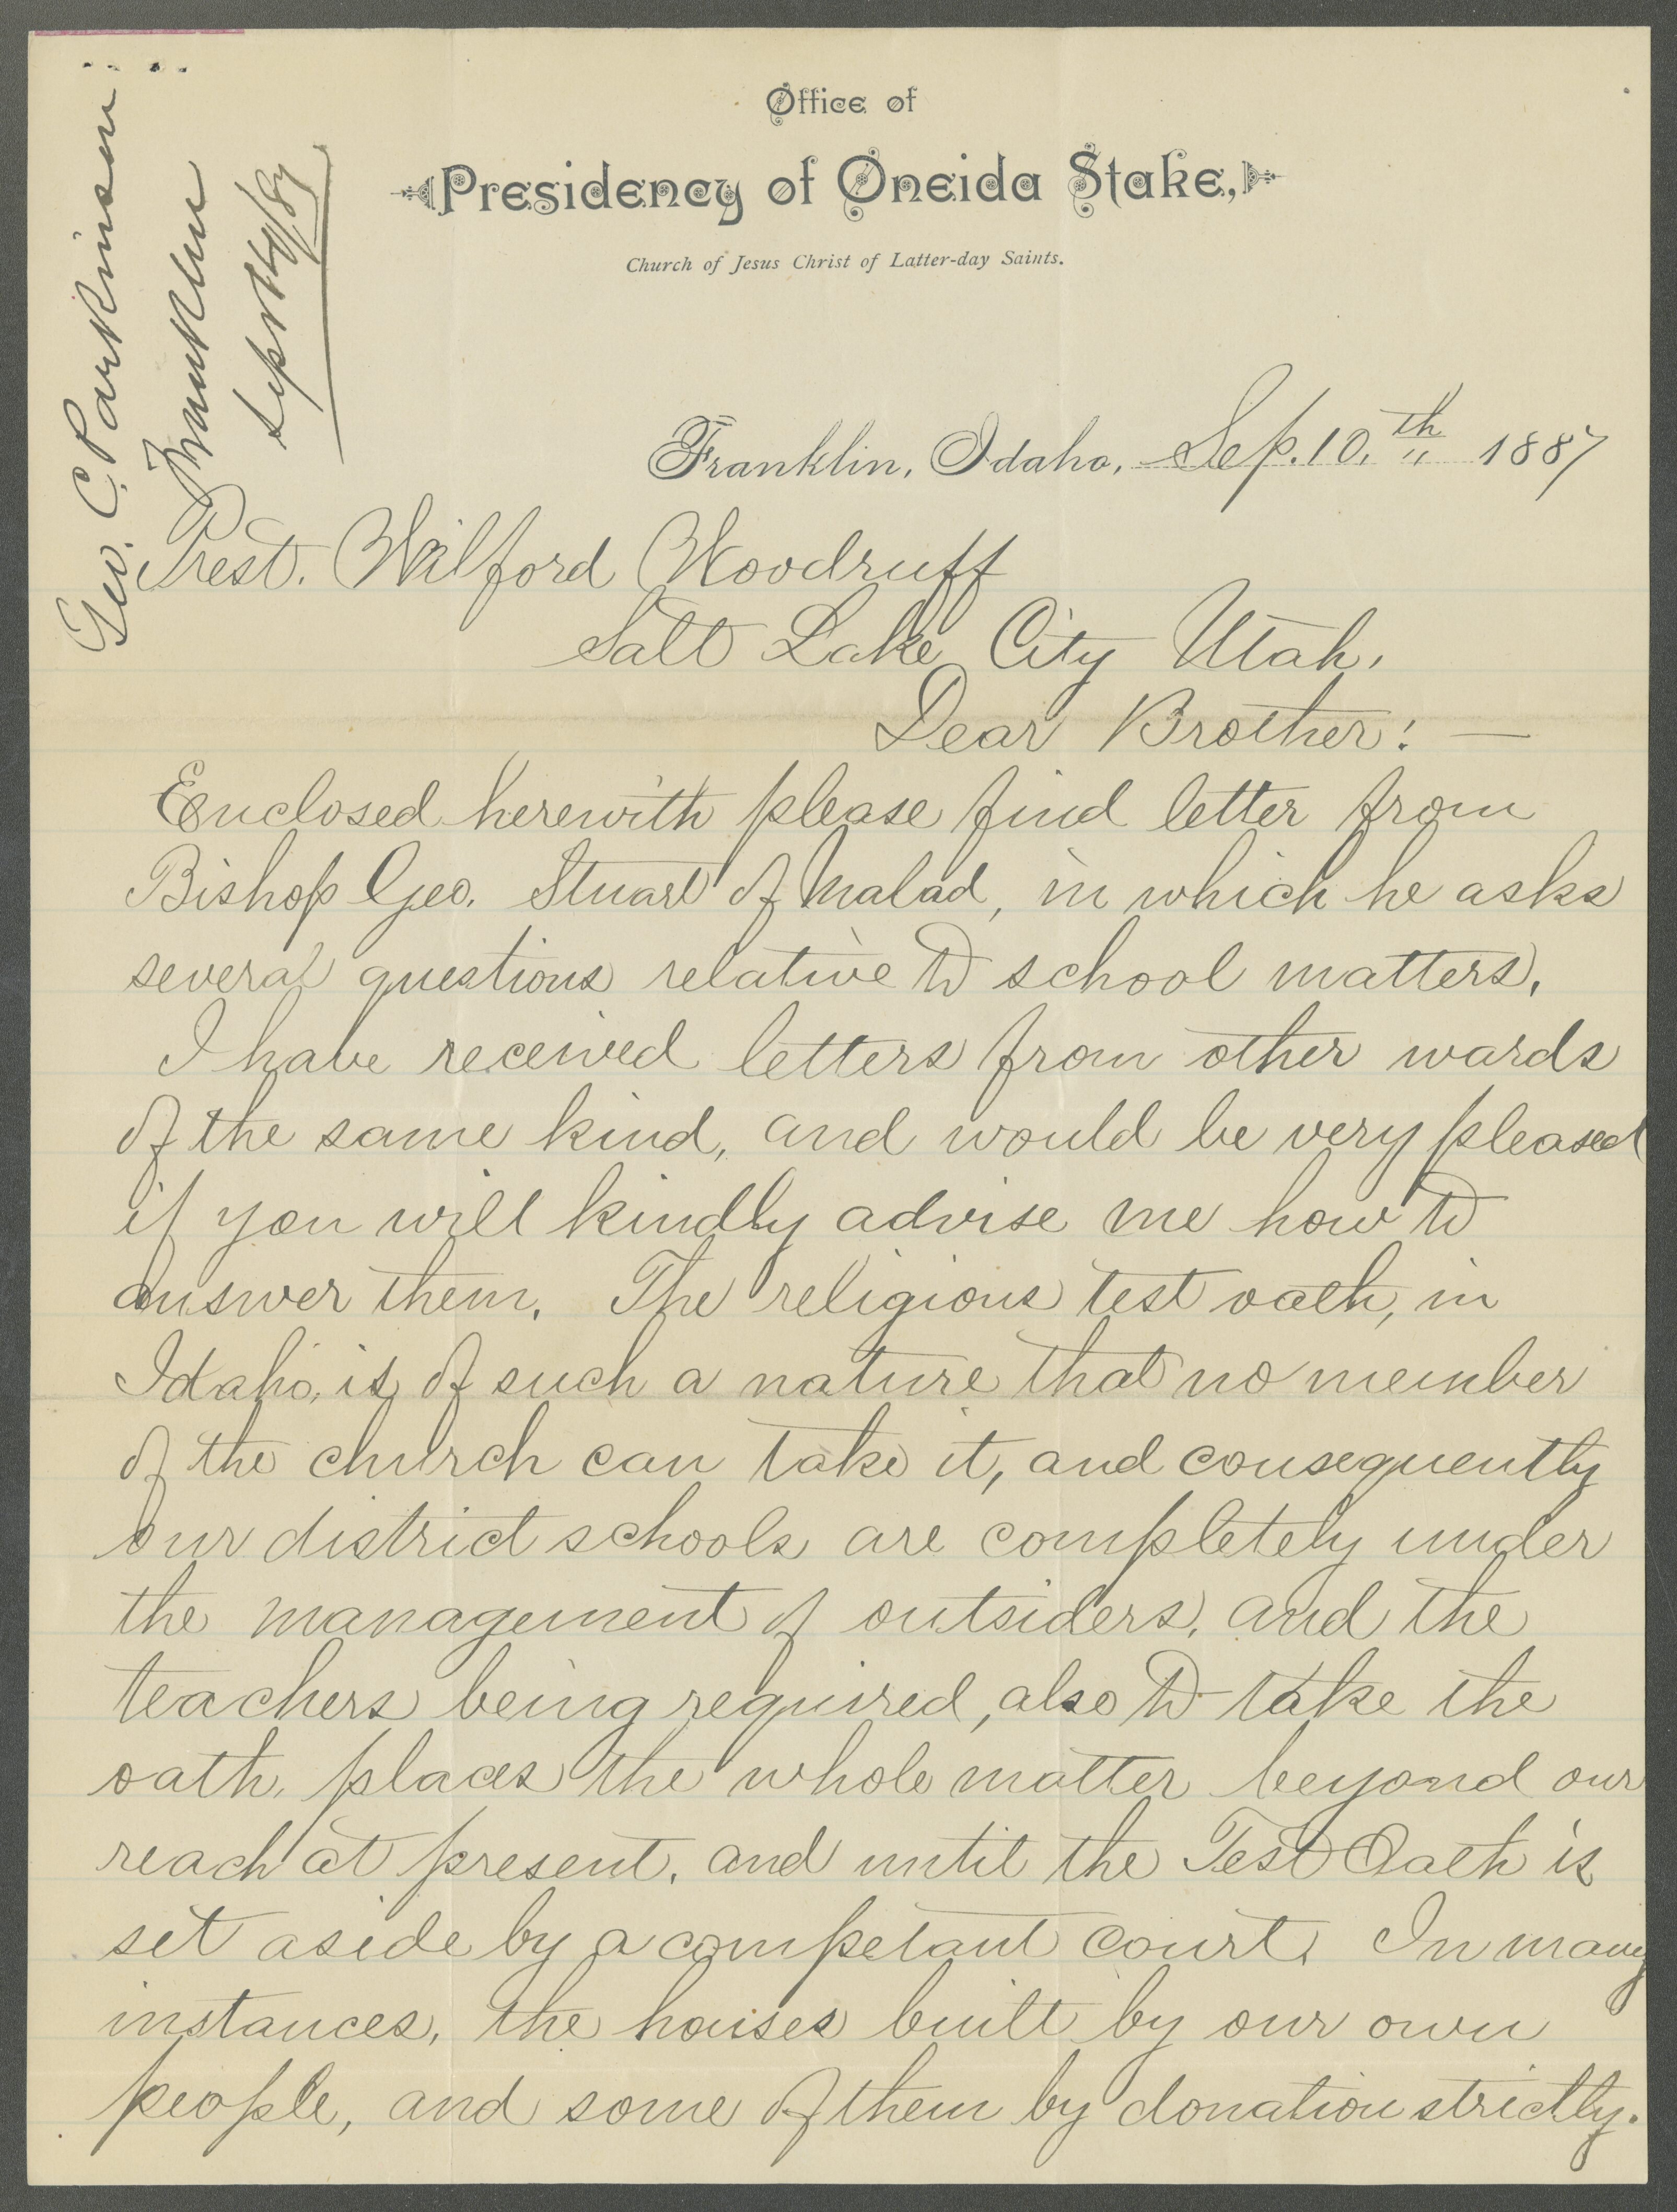 Office of
Presidency of Oneida Stake,
Church of Jesus Christ of Latter-day Saints.
Geo. C. Parkinson
Franklin
Sept
Franklin, Idaho, Sep. 10,th 1887
Prest. Wilford Woodruff
Salt Lake City Utah,
Dear Brother: —
Enclosed herewith please find letter from
Bishop Geo. Stuart of Malad, in which he asks
several questions relative to school matters,
I have received letters from other wards
of the same kind, and would be very pleased
if you will kindly advise me how to
answer them. The religious test oath, in
Idaho, is, of such a nature that no member
of the church can take it, and consequently
our district schools are completely under
the management of outsiders, and the
teachers being required, also to take the
oath, places the whole matter beyond our
reach at present, and until the Test Oath is
set aside by a competant court. In many
instances, the houses built by our own
people, and some of them by donation strictly.